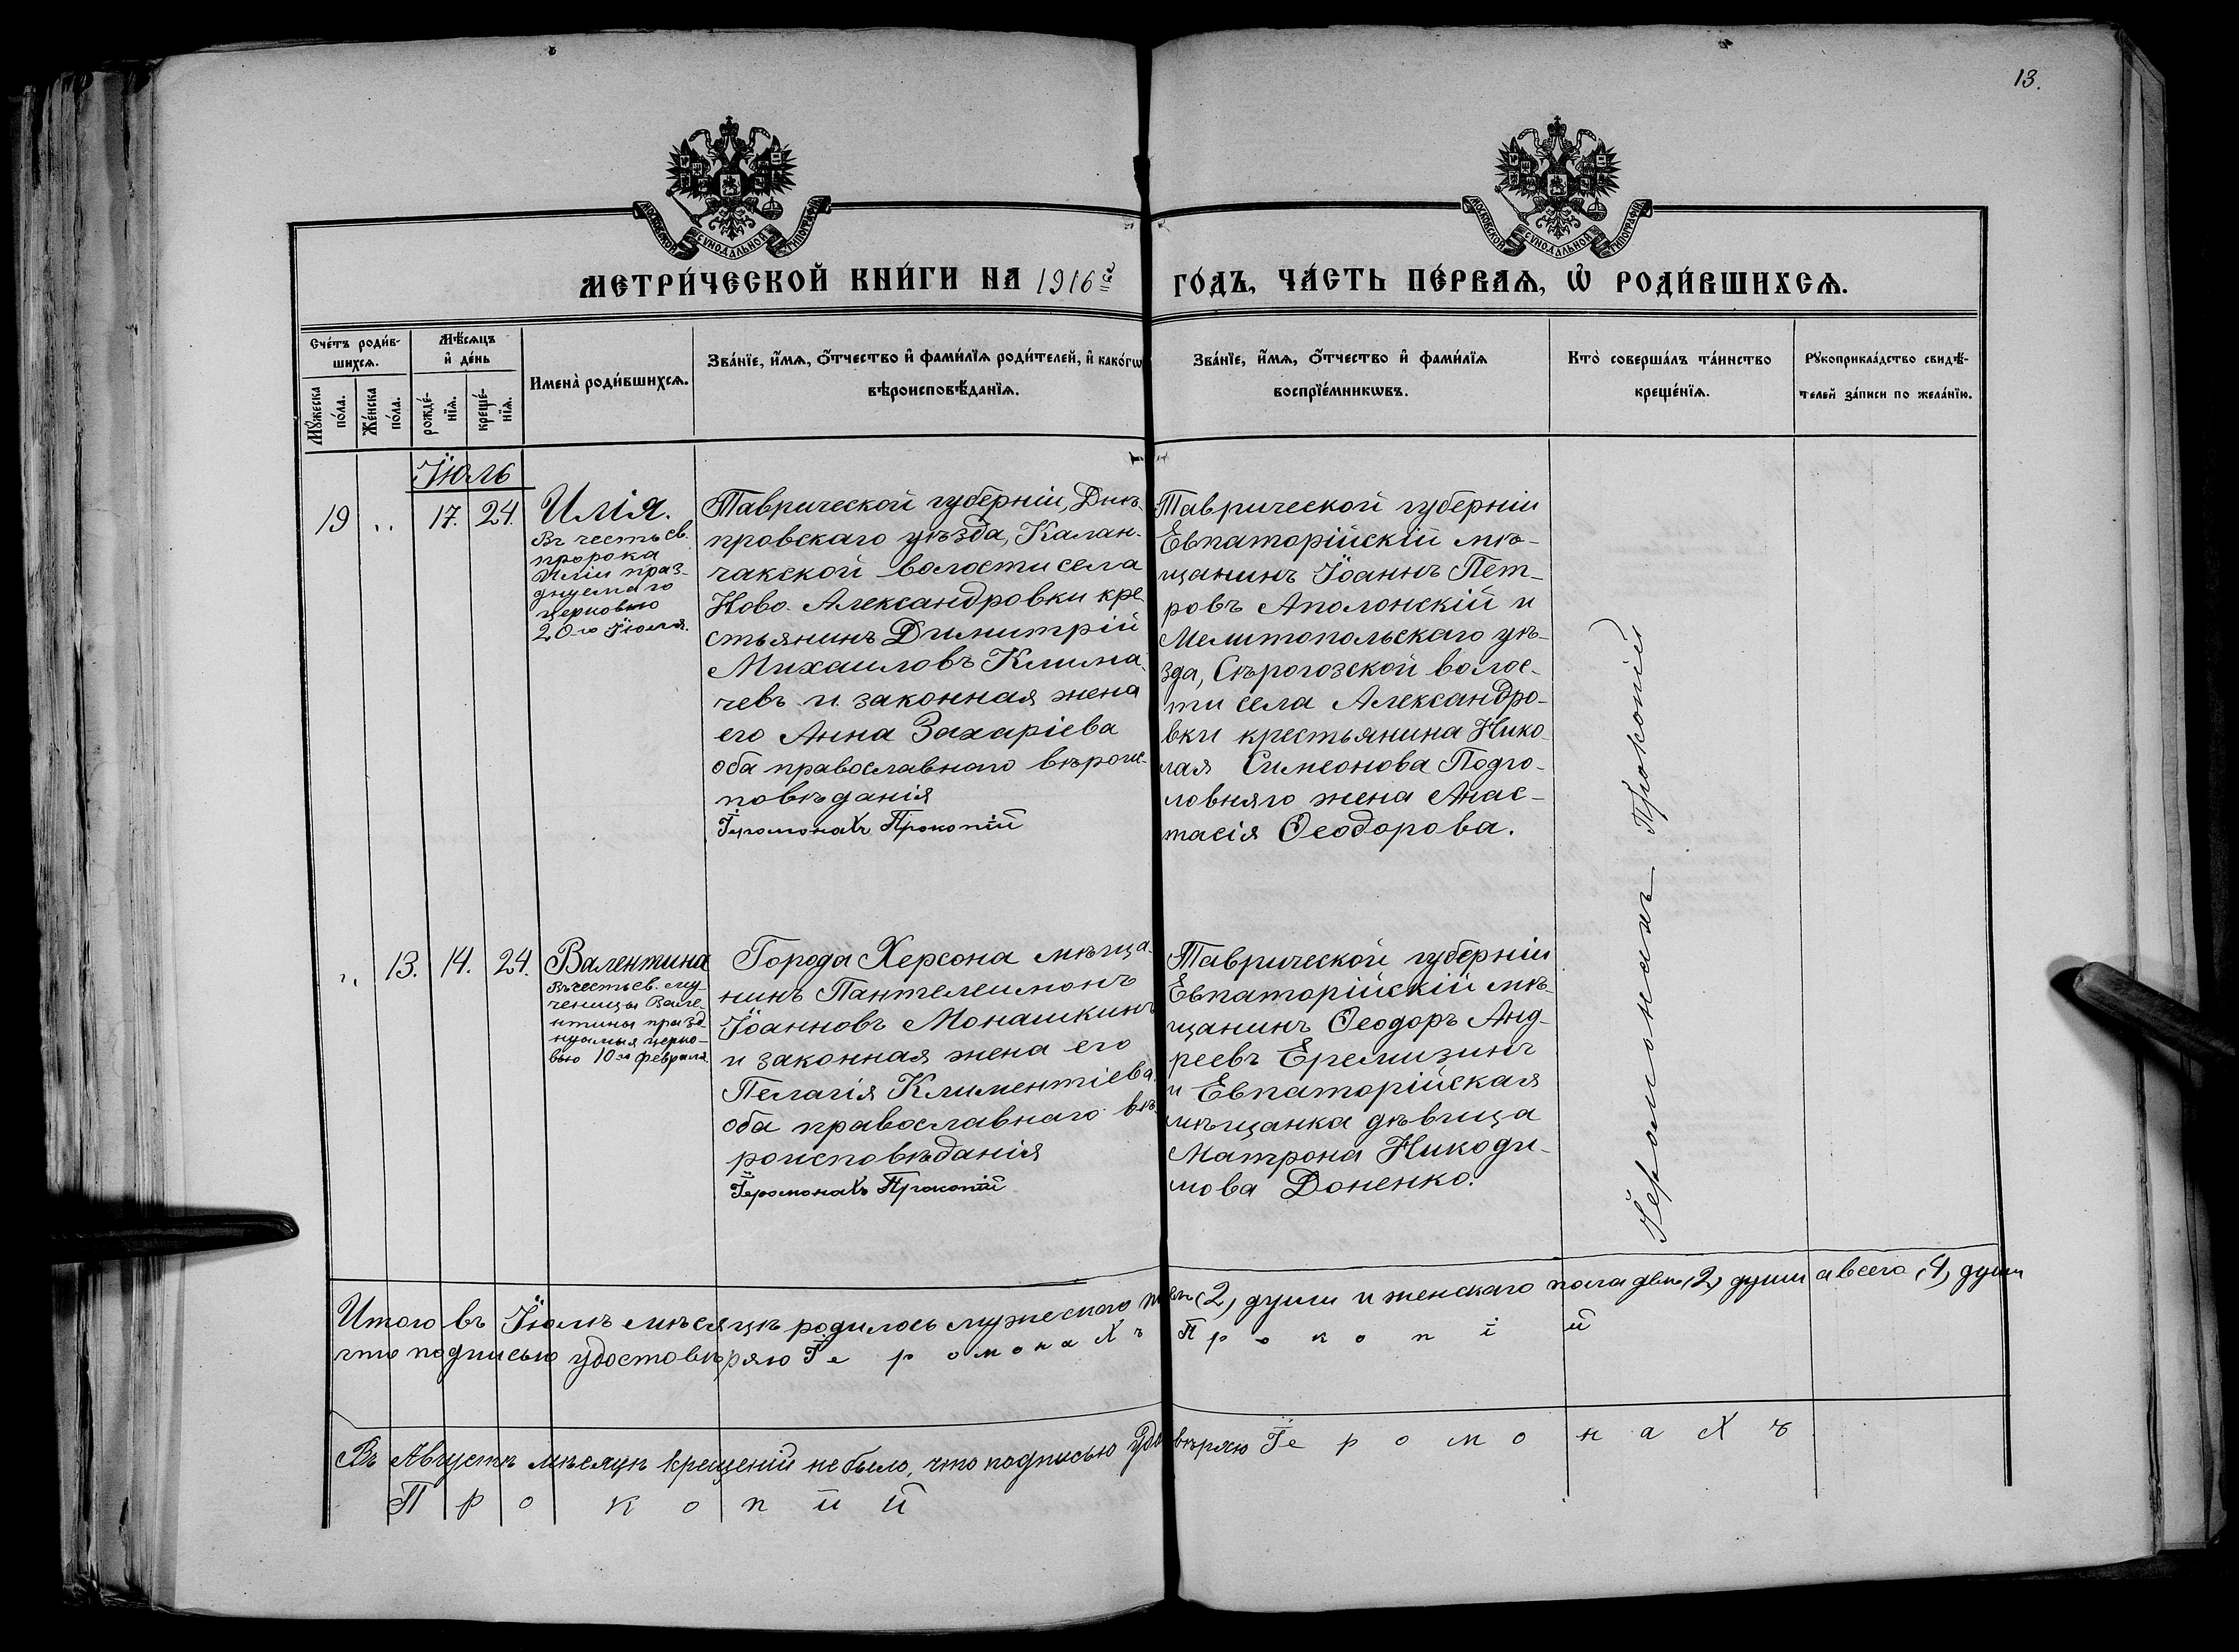 13.
МОСКОВСКОЙ СѴНОДАЛЬНОЙ ТИПОГРАФІИ
МОСКОВСКОЙ СѴНОДАЛЬНОЙ ТИПОГРАФІИ
МЕТРИ́ЧЕСКОЙ КНИ́ГИ НА 1916й ГО́ДЪ, ЧА́СТЬ ПЕ́РВАѦ, Ѡ҆ РОДИ́ВШИХСѦ.
Сче́тъ роди́в-
шихсѧ.
Мꙋ́жеска
по́ла.
Же́нска
по́ла.
Мѣ́сѧцъ
и҆ де́нь
рожде́-
нїѧ.
креще́-
нїѧ.
Имена̀ роди́вшихсѧ.
Зва́нїе, и҆́мѧ, ѻ҆́тчество и҆ фами́лїѧ роди́телей, и҆ како́гѡ
вѣроисповѣ́данїѧ.
Зва́нїе, и҆́мѧ, ѻ҆́тчество и҆ фами́лїѧ
воспрїе́мникѡвъ.
Кто̀ соверша́лъ та́инство
креще́нїѧ.
Рꙋкоприкла́дство свидѣ́-
телей за́писи по жела́нїю.
Іюль
19 " 17. 24.
Илія.
Въ честь св.
пророка
Иліи праз-
днуемаго
церковью
20-го Іюля.
Таврической губерніи, Днѣ-
провскаго уѣзда, Калан-
чакской волости села
Ново-Александровки кре-
стьянинъ Димитрій
Михаиловъ Клима-
чевъ и законная жена
его Анна Захаріева
оба православнаго вѣроис-
повѣданія
Іеромонахъ Прокопій
Таврической губерніи
Евпаторійскій мѣ-
щанинъ Іоаннъ Пет-
ровъ Аполонскій и
Мелитопольскаго уѣ-
зда, Сѣрогозской волос-
ти села Александро-
вки крестьянина Нико-
лая Симеонова Подго-
ловняго жена Анас-
тасія Ѳеодорова.
Іеромонахъ Прокопій
" 13. 14. 24.
Валентина
Въ честь св. му-
ченицы Вале-
нтины празд-
нуемыя церко-
вью 10го февраля.
Города Херсона мѣща-
нинъ Пантелеимонъ
Іоанновъ Монашкинъ
и законная жена его
Пелагія Климентіева
оба православнаго вѣ-
роисповѣданія
Іеромонахъ Прокопій
Таврической губерніи
Евпаторійскій мѣ-
щанинъ Ѳеодоръ Анд-
реевъ Еремизинъ
и Евпаторійская
мѣщанка дѣвица
Матрона Никоди-
мова Доненко.
Итого въ Іюлѣ мѣсяцѣ родилось мужескаго (2) души и женскаго пола двѣ (2) души а всего (4) души
что подписью удостовѣряю Іеромонахъ Прокопій
Въ Августѣ мѣсяцѣ крещеній не было, что подписью удостовѣряю Іеромонахъ
Прокопій